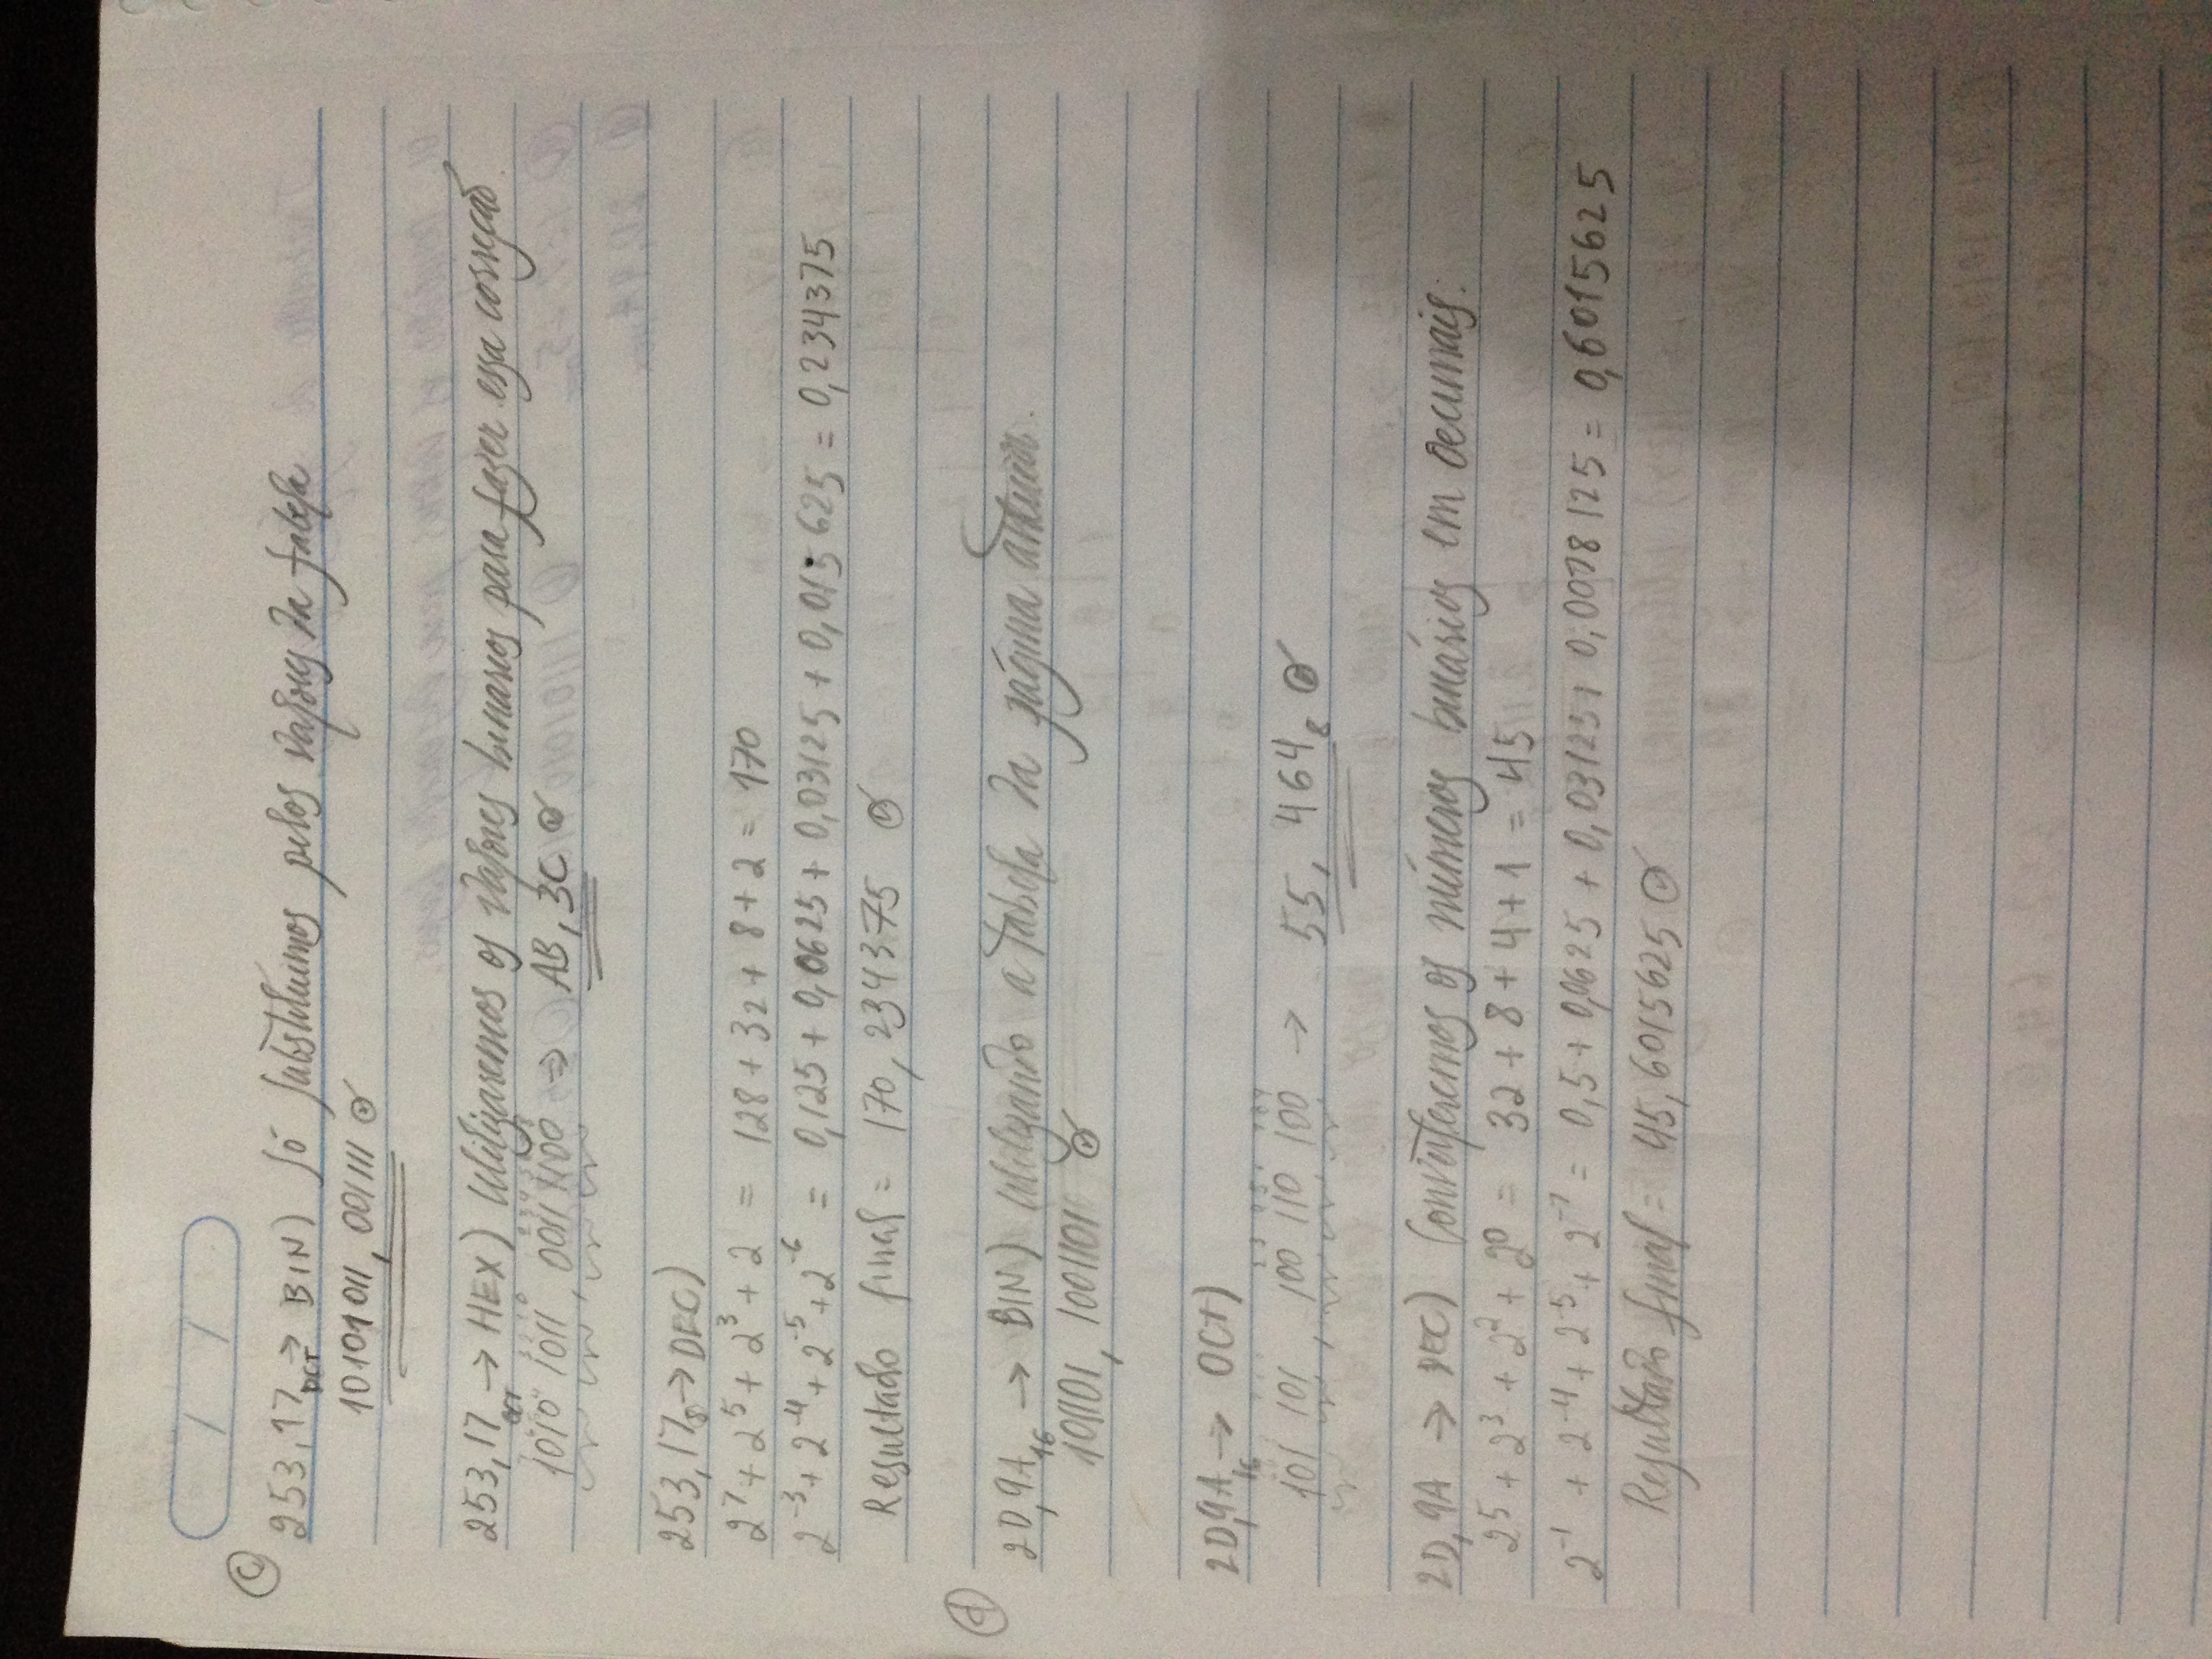 / /
c
253,17 OCT → BIN) Só substituimos pelos valores da tabela
10101011, 001111
253,17 OCT → HEX) Utilizaremos os valores binarios para fazer essa correção.
1010 1011, 0011 1100 => AB, 3C
253,17₈ → DEC)
2⁷ + 2⁵ + 2³ + 2 = 128 + 32 + 8 + 2 = 170
2⁻³ + 2⁻⁴ + 2⁻⁵ + 2⁻⁶ = 0,125 + 0,0625 + 0,03125 + 0,015625 = 0,234375
Resultado final = 170,234375
d
2D,9A₁₆ → BIN) Utilizando a tabela da página anterior.
101101, 1001101
2D,9A₁₆ → OCT)
101 101, 100 110 100 → 55, 464₈
2D,9A → DEC) Converteremos os números binários em decimais:
2⁵ + 2³ + 2² + 2⁰ = 32 + 8 + 4 + 1 = 45
2⁻¹ + 2⁻⁴ + 2⁻⁵ + 2⁻⁷ = 0,5 + 0,0625 + 0,03125 + 0,0078125 = 0,6015625
Resultado final = 45,6015625